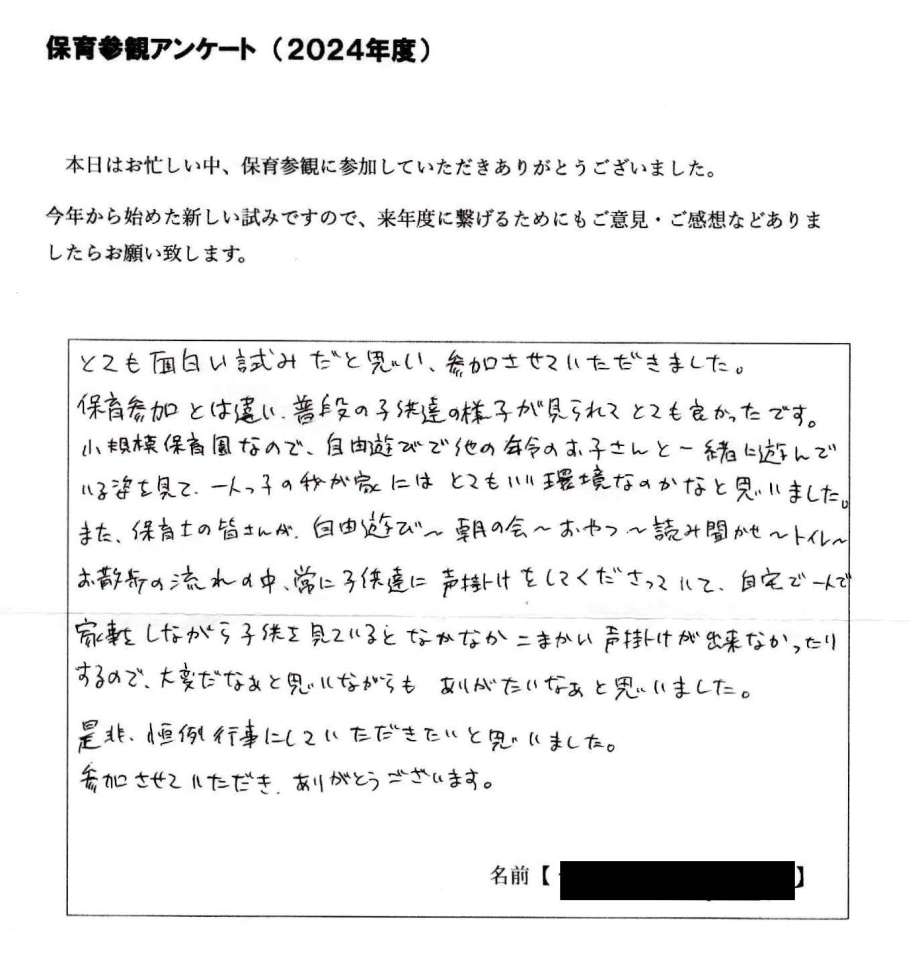 保育参観アンケート（2024年度）
本日はお忙しい中、保育参観に参加していただきありがとうございました。
今年から始めた新しい試みですので、来年度に繋げるためにもご意見・ご感想などありま
したらお願い致します。
とても面白い試みだと思い、参加させていただきました。
保育参加とは違い、普段の子供達の様子が見られてとても良かったです。
小規模保育園なので、自由遊びで他の年令のお子さんと一緒に遊んで
いる姿を見て、一人っ子の我が家にはとてもいい環境なのかなと思いました。
また、保育士の皆さんが、自由遊び〜朝の会〜おやつ〜読み聞かせ〜トイレ〜
お散歩の流れの中、常に子供達に声掛けをしてくださっていて、自宅で一人で
家事をしながら子供を見ているとなかなかこまかい声掛けが出来なかったり
するので、大変だなぁと思いながらも ありがたいなぁと思いました。
是非、恒例行事にしていただきたいと思いました。
参加させていただき、ありがとうございます。
名前【 】